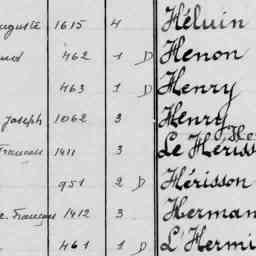 Auguste 1615 4 Héluin
462 1 D Henon
463 1 D Henry
Joseph 1062 3 Henry
François 1411 3 Le Hériss
951 2 D Hérisson
François 1412 3 Herman
461 1 D L'Hermi